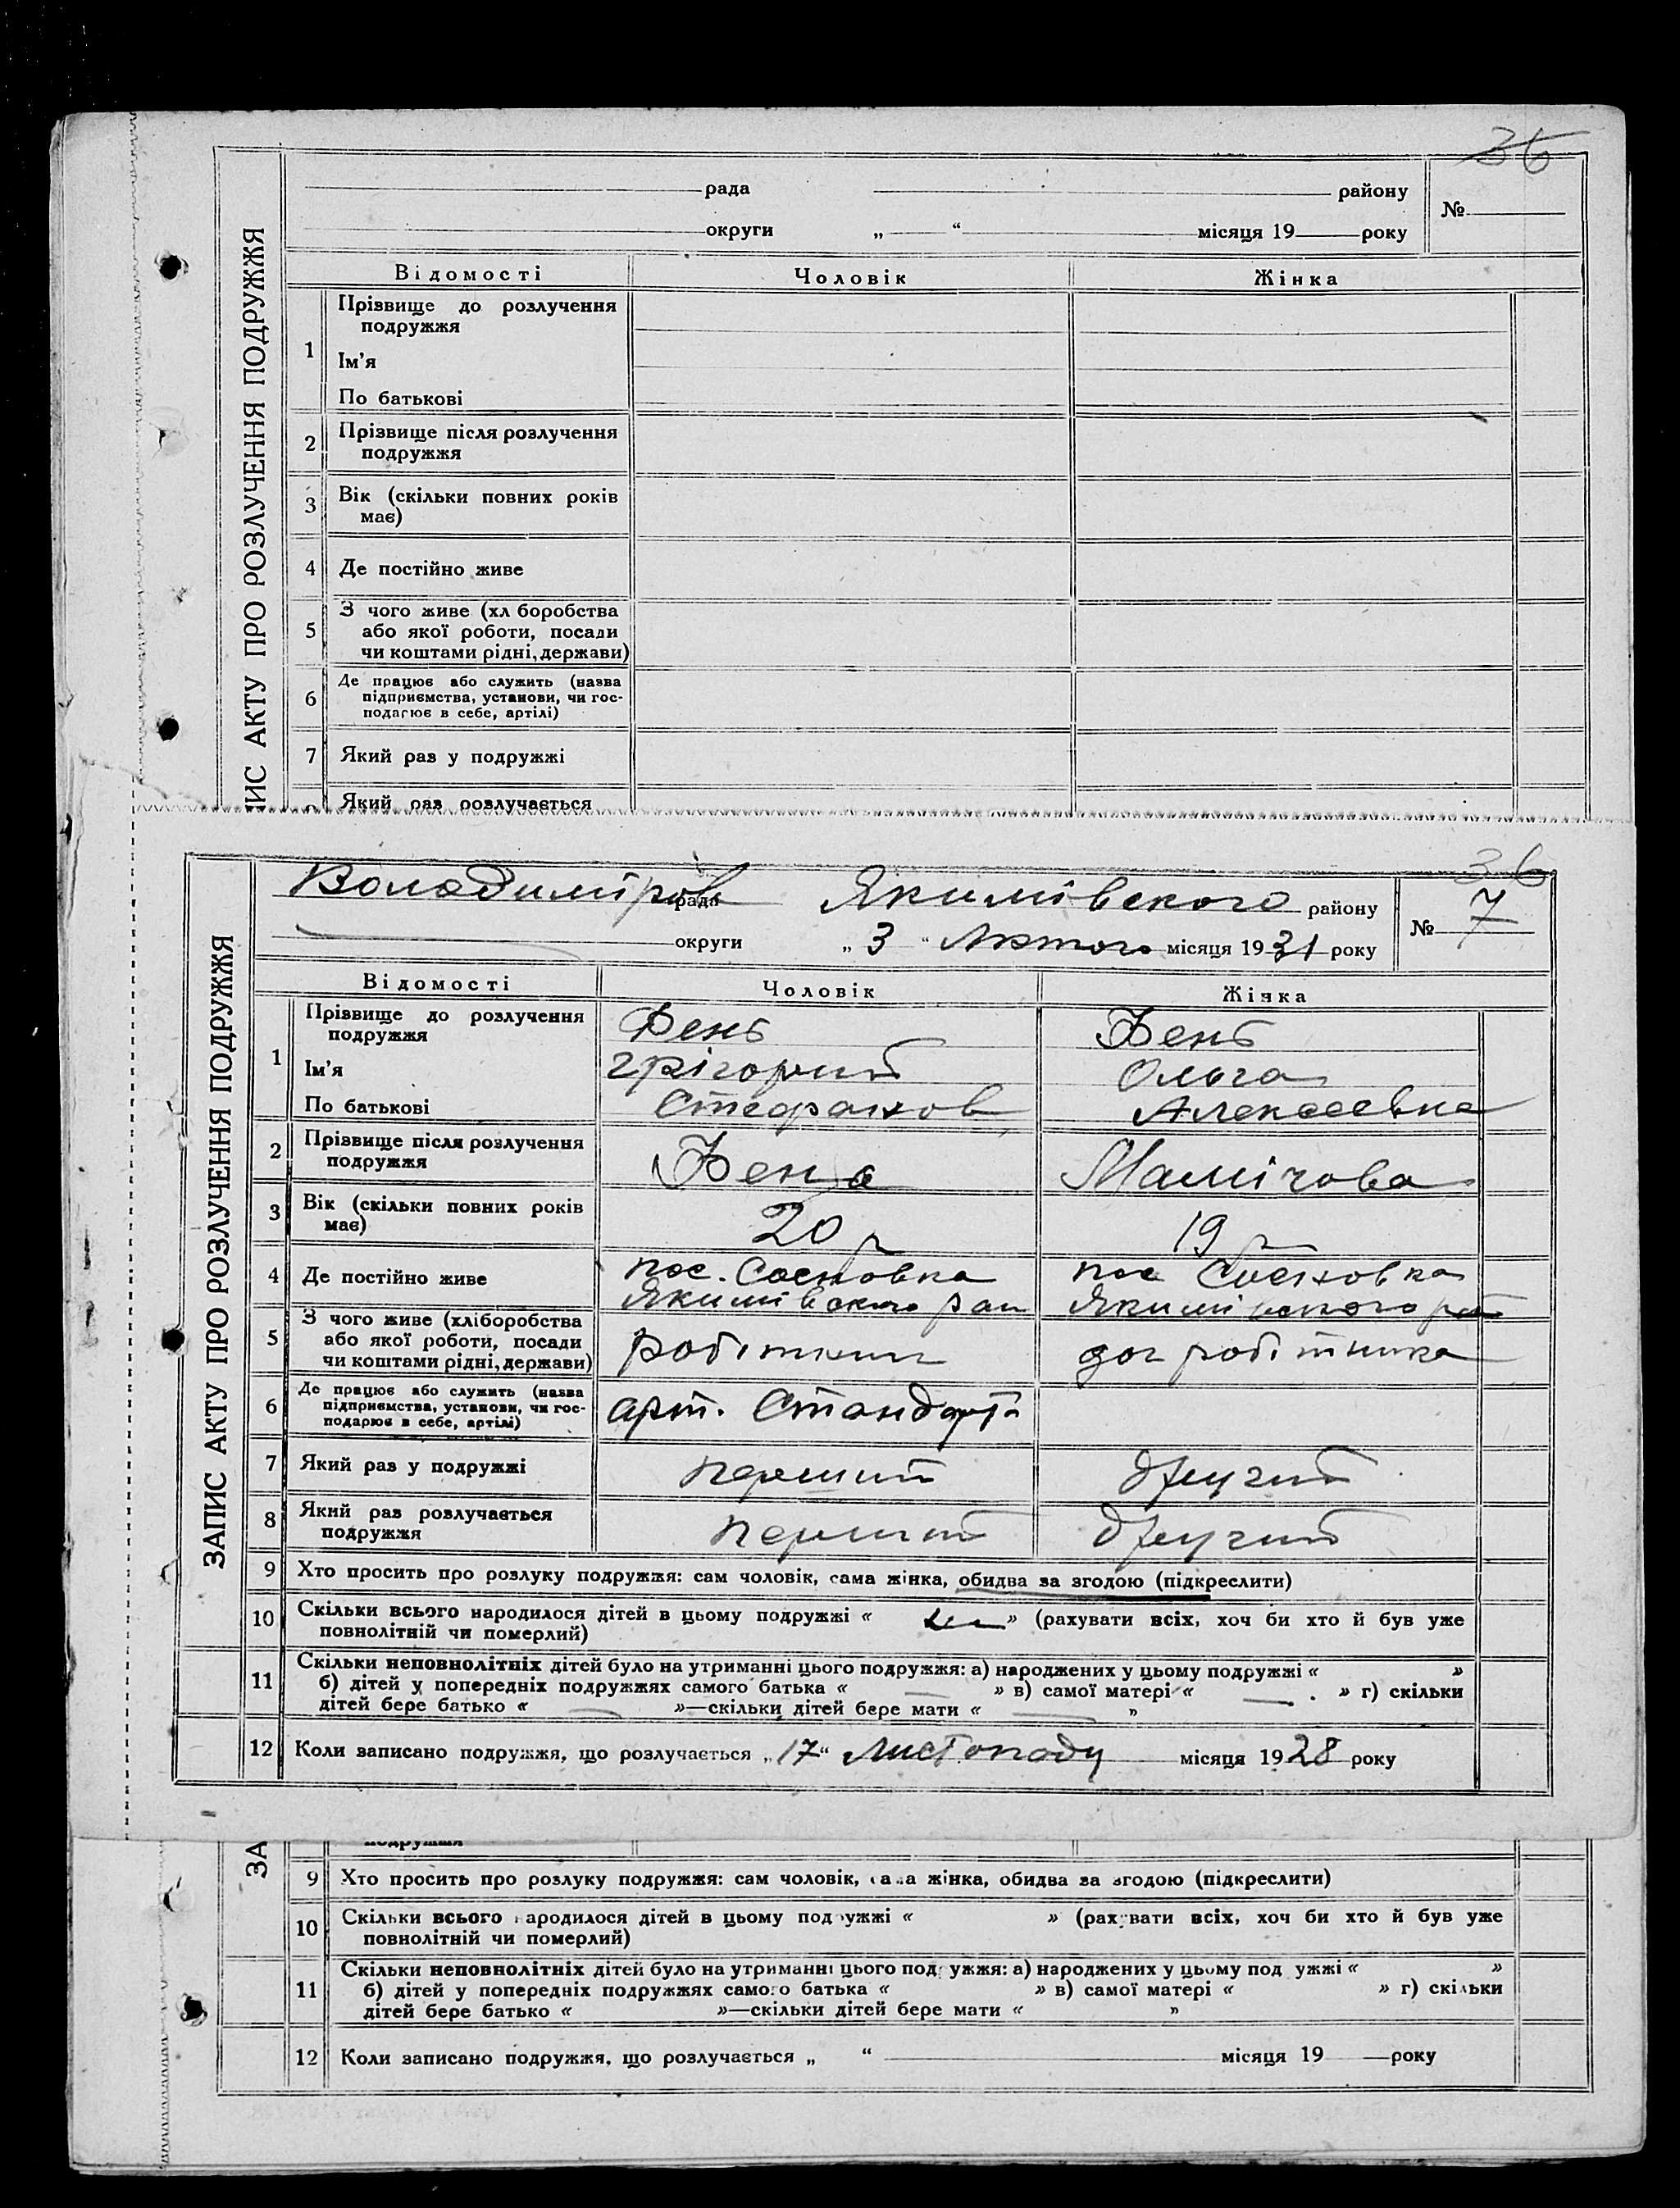 36
рада району
№
округи „ “ місяця 19 року
ЗАПИС АКТУ ПРО РОЗЛУЧЕННЯ ПОДРУЖЖЯ
Відомості Чоловік Жінка
1 Прізвище до розлучення
подружжя
Ім'я
По батькові
2 Прізвище після розлучення
подружжя
3 Вік (скільки повних років
має)
4 Де постійно живе
5 З чого живе (хл боробства
або якої роботи, посади
чи коштами рідні, держави)
6 Де працює або служить (назва
підприємства, установи, чи гос-
подарює в себе, артілі)
7 Який раз у подружжі
Який раз розлучається
36
Володимірів рада Якимівского району
№ 7
округи „ 3 “ Лютого місяця 1931 року
ЗАПИС АКТУ ПРО РОЗЛУЧЕННЯ ПОДРУЖЖЯ
Відомості Чоловік Жінка
1 Прізвище до розлучення
подружжя
Ім'я Грігорий Ольга
По батькові Стефанов Алексеевна
2 Прізвище після розлучення
подружжя
3 Вік (скільки повних років
має) 20 р 19 р
4 Де постійно живе пос. Сосновка пос Сосновка
Якимівского рай Якимівского рай
5 З чого живе (хліборобства
або якої роботи, посади
чи коштами рідні, держави) робітник доч робітника
6 Де працює або служить (назва
підприємства, установи, чи гос-
подарює в себе, артілі) арт. Стандарт
7 Який раз у подружжі перший другий
8 Який раз розлучається
подружжя перший другий
9 Хто просить про розлуку подружжя: сам чоловік, сама жінка, обидва за згодою (підкреслити)
10 Скільки всього народилося дітей в цьому подружжі « » (рахувати всіх, хоч би хто й був уже
повнолітній чи померлий)
11 Скільки неповнолітніх дітей було на утриманні цього подружжя: а) народжених у цьому подружжі « »
б) дітей у попередніх подружжях самого батька « — » в) самої матері « — . » г) скільки
дітей бере батько « — »—скільки дітей бере мати « — »
12 Коли записано подружжя, що розлучається „17“ Листопаду місяця 1928 року
подружжя
ЗА
9 Хто просить про розлуку подружжя: сам чоловік, сама жінка, обидва за згодою (підкреслити)
10 Скільки всього народилося дітей в цьому подружжі « » (рахувати всіх, хоч би хто й був уже
повнолітній чи померлий)
11 Скільки неповнолітніх дітей було на утриманні цього подружжя: а) народжених у цьому подружжі « »
б) дітей у попередніх подружжях самого батька « » в) самої матері « » г) скільки
дітей бере батько « »—скільки дітей бере мати « »
12 Коли записано подружжя, що розлучається „ “ місяця 19 року